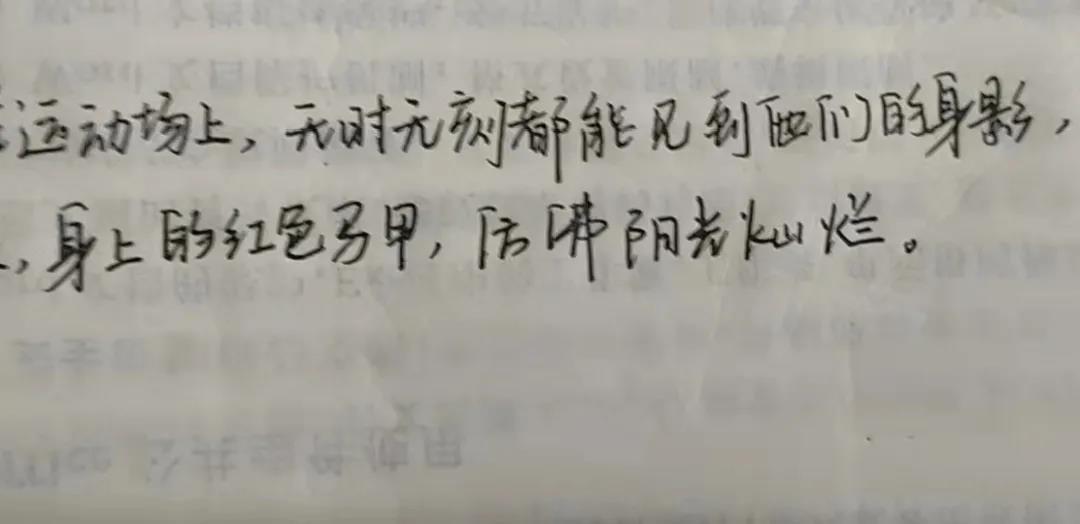 运动场上，无时无刻都能见到他们的身影，
，身上的红色马甲，仿佛阳光灿烂。